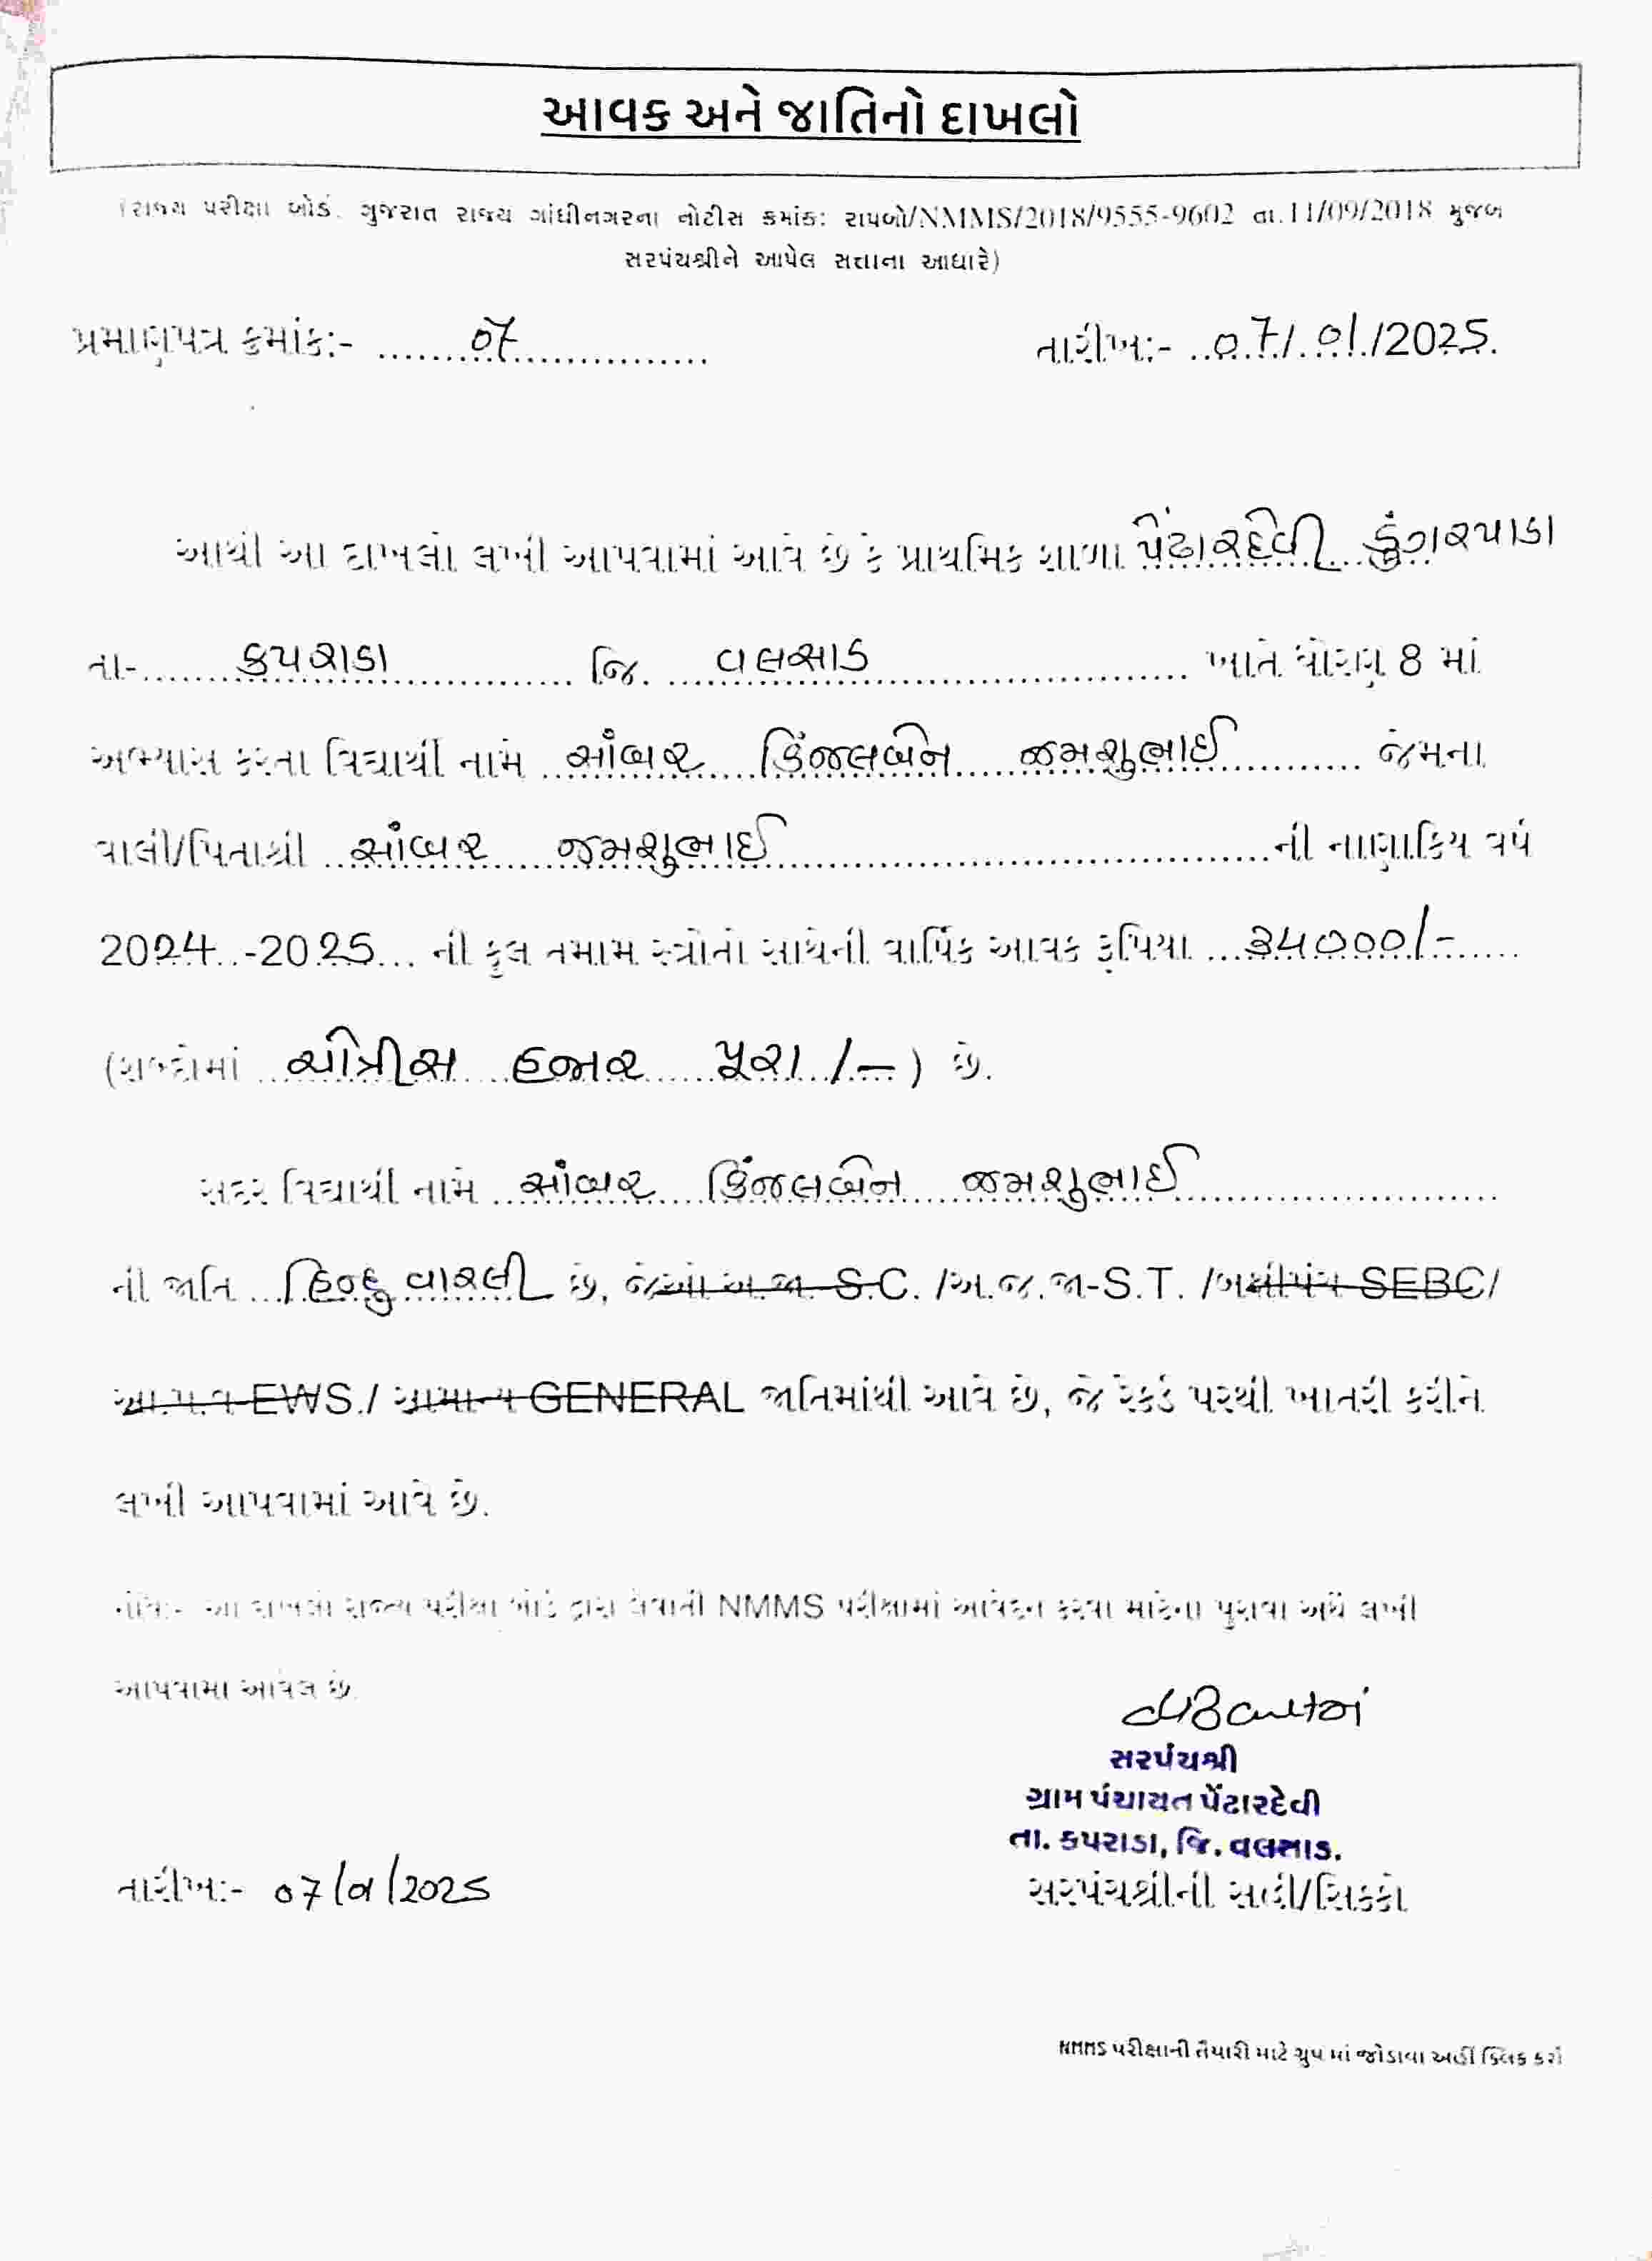 આવક અને જાતિનો દાખલો
(રાજ્ય પરીક્ષા બોર્ડ. ગુજરાત રાજ્ય ગાંધીનગરના નોટીસ ક્રમાંક: રાપબો/NMMS/2018/9555-9602 તા.11/09/2018 મુજબ
સરપંચશ્રીને આપેલ સત્તાના આધારે)
પ્રમાણપત્ર ક્રમાંક:- 07 તારીખ:- 07/01/2025.
આથી આ દાખલો લખી આપવામાં આવે છે કે પ્રાથમિક શાળા પેંઢારદેવી ડુંગરપાડા
તા- કપરાડા જિ. વલસાડ ખાતે ધોરણ 8 માં
અભ્યાસ કરતા વિદ્યાર્થી નામ સાંબર કિંજલબેન જમશુભાઈ જેમના
વાલી/પિતાશ્રી સાંબર જમશુભાઈ ની નાણાકિય વર્ષ
2024..-2025... ની કુલ તમામ સ્ત્રોતો સાથેની વાર્ષિક આવક રૂપિયા ૩૫૦૦૦/-
(શબ્દોમાં ચોત્રીસ હજાર પૂરા /-) છે.
સદર વિદ્યાર્થી નામ સાંબર કિંજલબેન જમશુભાઈ
ની જાતિ હિન્દુ વારલી છે, જેઓ અ.જા. S.C. /અ.જ.જા-S.T. /બક્ષીપંચ SEBC/
આ.પ.વ-EWS./ સામાન્ય GENERAL જાતિમાંથી આવે છે, જે રેકર્ડ પરથી ખાતરી કરીને
લખી આપવામાં આવે છે.
નોંધ:- આ દાખલો રાજ્ય પરીક્ષા બોર્ડ દ્વારા લેવાતી NMMS પરીક્ષામાં આવેદન કરવા માટેના પુરાવા અર્થે લખી
આપવામા આવેલ છે.
સરપંચશ્રી
ગ્રામ પંચાયત પેંઢારદેવી
તા. કપરાડા, જિ. વલસાડ.
તારીખ:- 07/01/2025 સરપંચશ્રીની સહી/સિક્કો
NMMS પરીક્ષાની તૈયારી માટે ગ્રુપ માં જોડાવા અહીં ક્લિક કરો